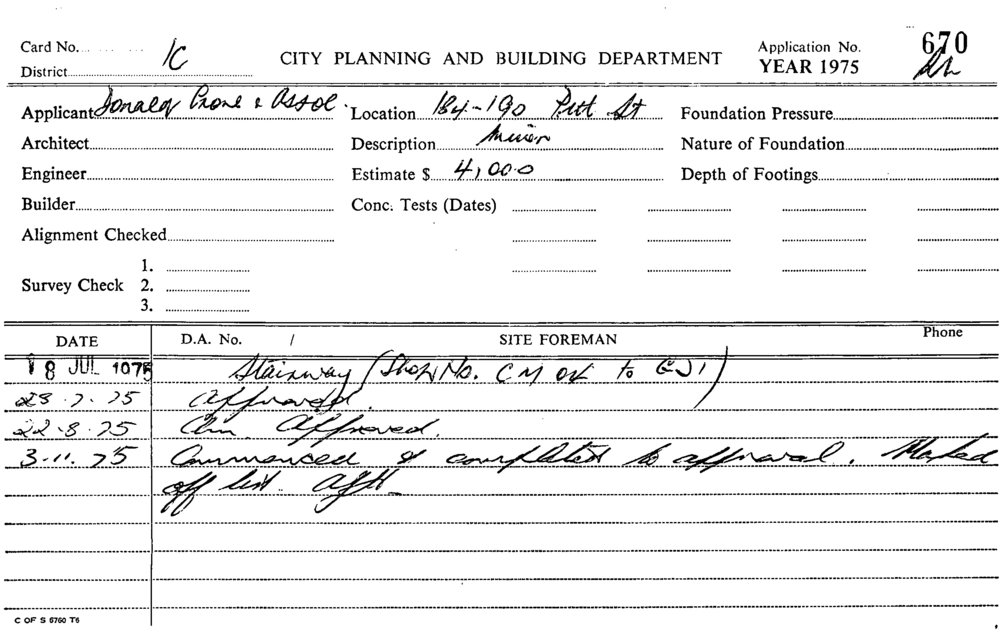 Card No. 1C
District
CITY PLANNING AND BUILDING DEPARTMENT
Application No. 670
YEAR 1975
Applicant Donald Crone & Assoc. Location 184-190 Pitt St Foundation Pressure
Architect Description Minor Nature of Foundation
Engineer Estimate $ 4,000 Depth of Footings
Builder Conc. Tests (Dates)
Alignment Checked
1.
Survey Check 2.
3.
DATE D.A. No. / SITE FOREMAN Phone
18 JUL 1975 Stairway (Shop No. to )
23.7.75 Approved.
22.8.75 Am. Approved.
3.11.75 Commenced & completed to approval. Marked
off list.
C OF S 6760 T6